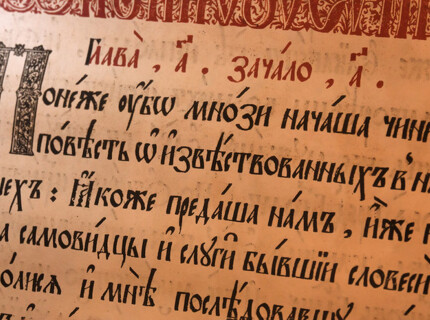 Глава̀, а҃. зача́ло, а҃.
Поне́же ᲂу҆́бѡ мно́зи нача́ша чини
по́вѣсть ѡ҆ и҆звѣ́ствованныхъ въ на
нехъ: ꙗ҆́коже преда́ша на́мъ, и҆̀же и
а самови́дцы и҆ слꙋги̑ бы́вшїи словесѐ
о́лисѧ и҆ мнѣ̀ послѣ́довавшꙋ